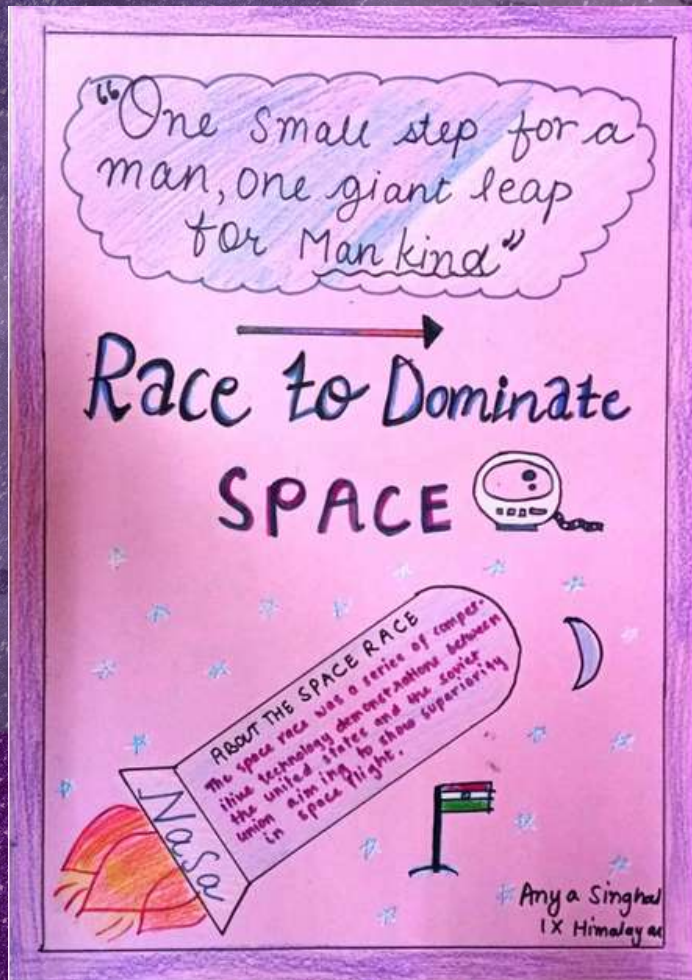 "One Small step for a
man, one giant leap
for Mankind"
Race to Dominate
SPACE
ABOUT THE SPACE RACE
The space race was a series of compet-
itive technology demonstrations between
the united states and the soviet
union aiming to show superiority
in space flight.
NaSa
Anya Singhal
IX Himalayan